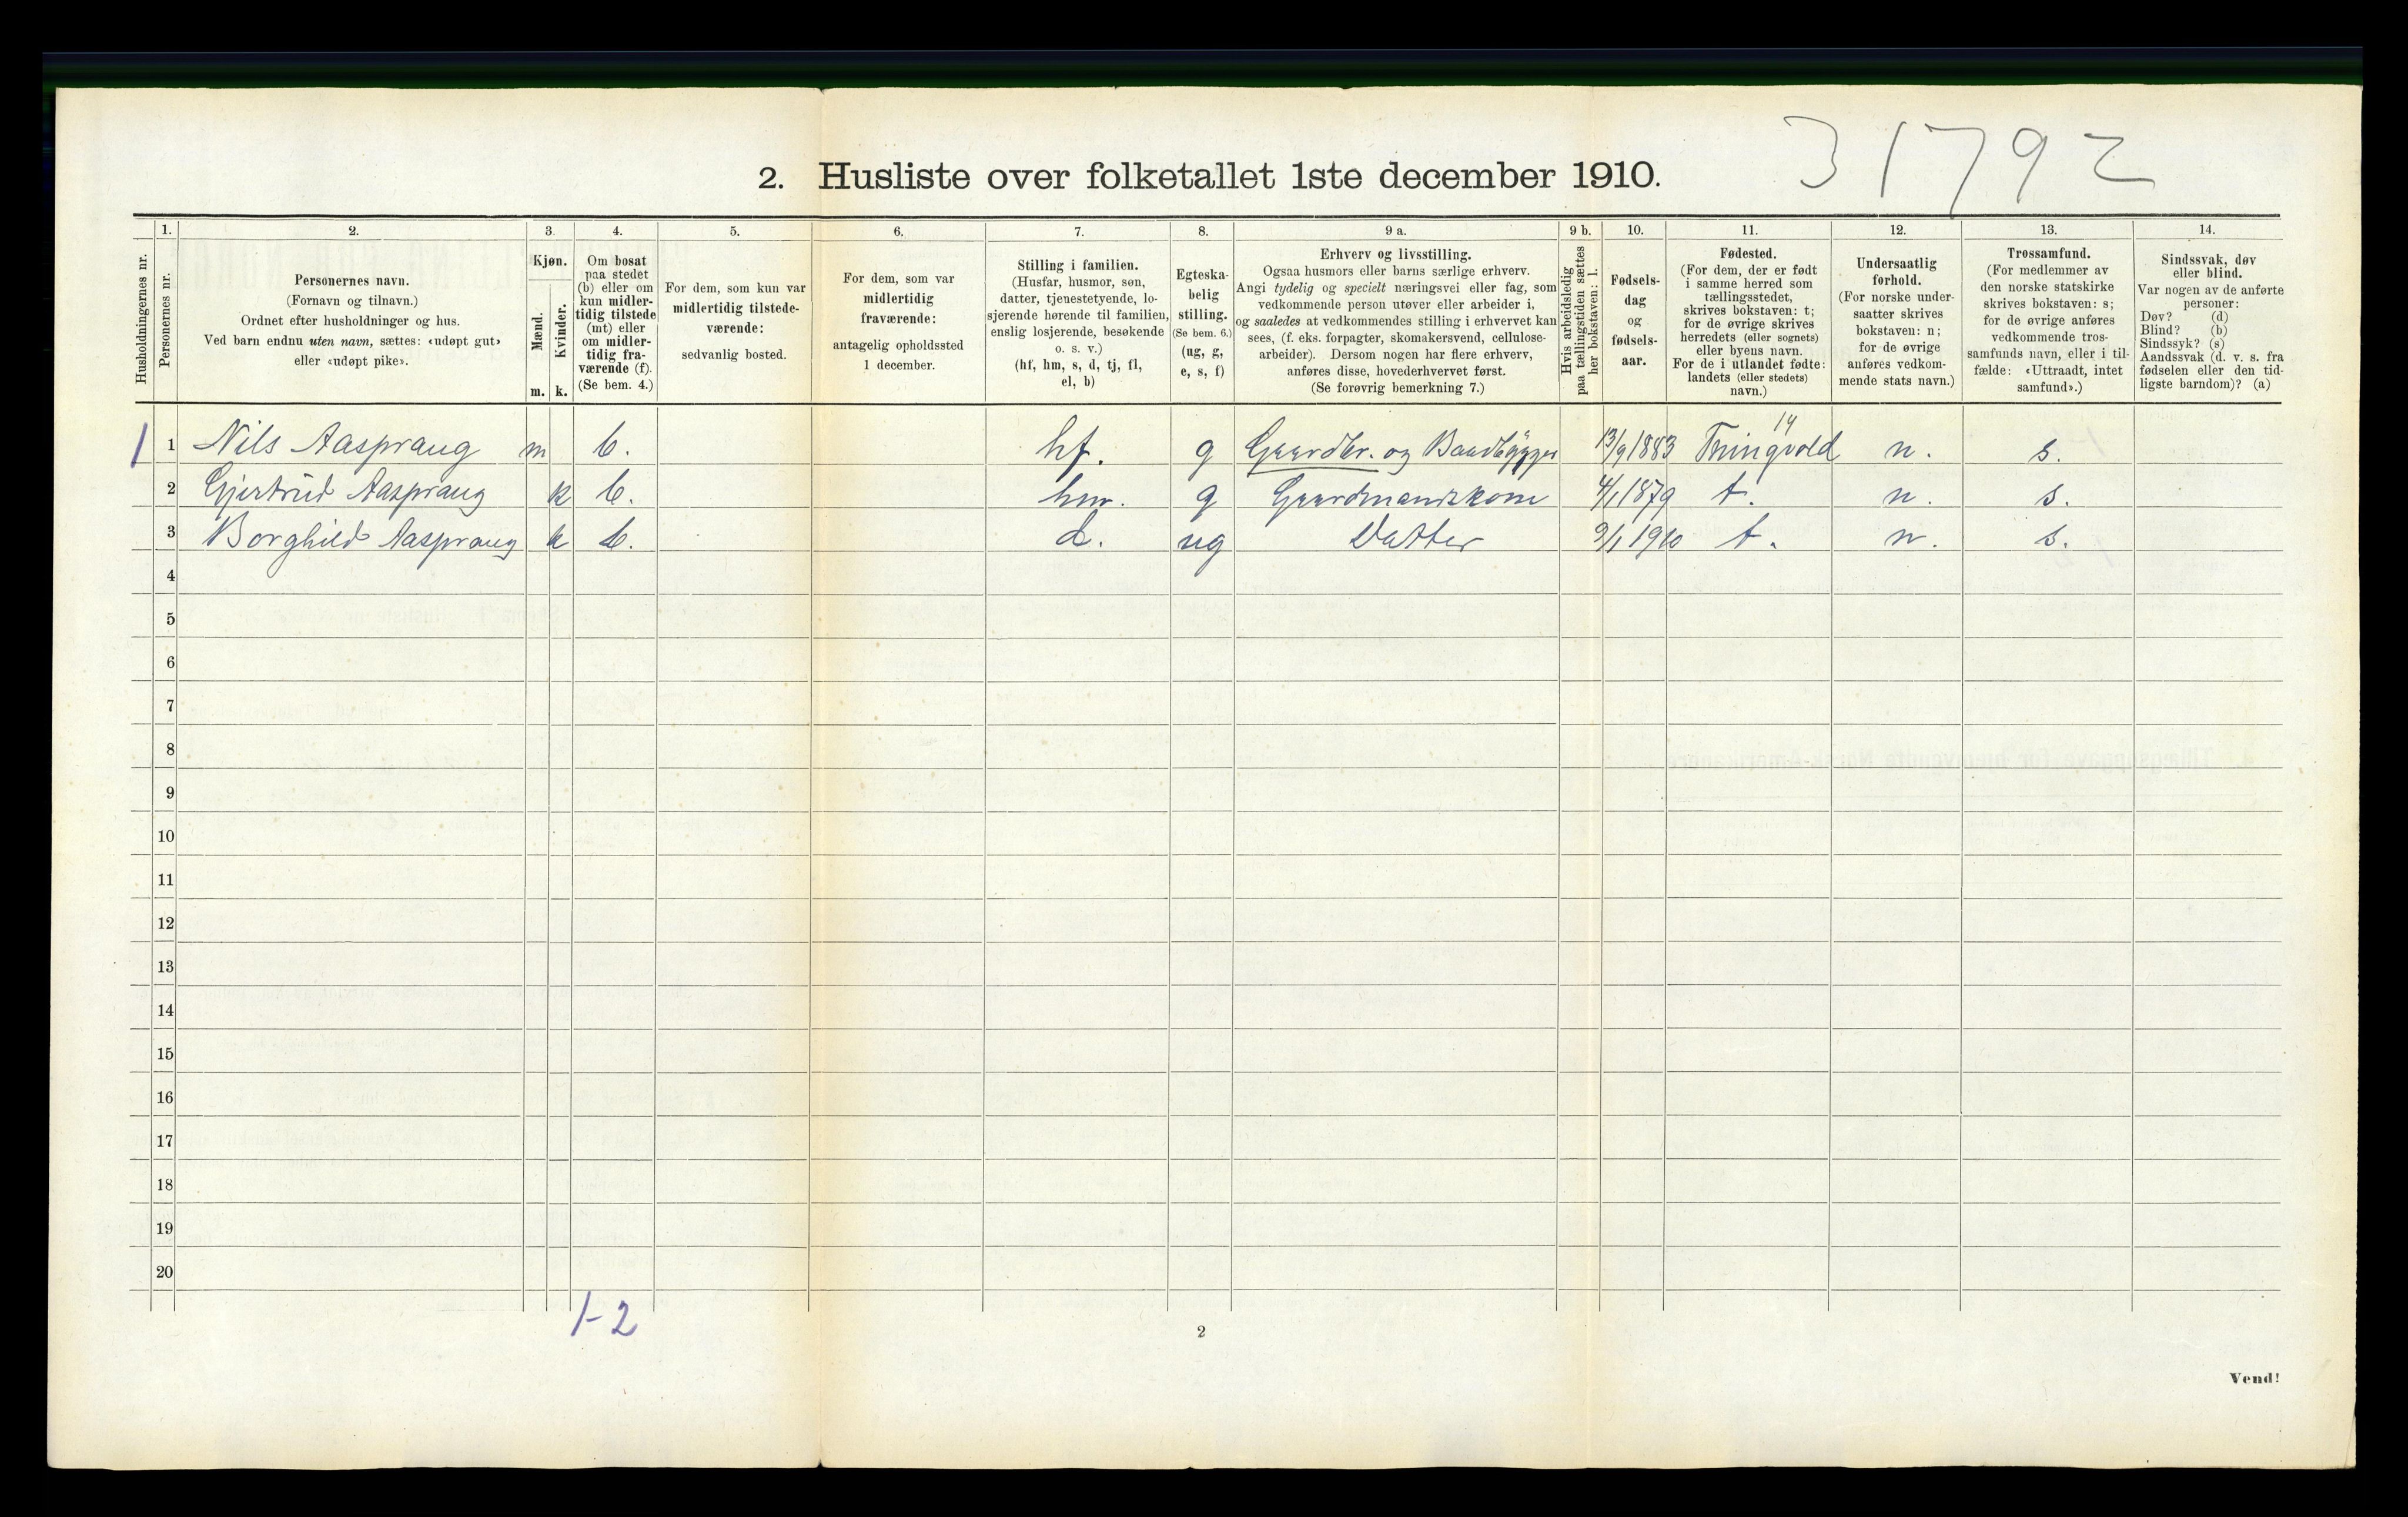 31792
2. Husliste over folketallet 1ste december 1910.
Husholdningernes nr.
1.
Personernes nr.
2.
Personernes navn.
(Fornavn og tilnavn.)
Ordnet efter husholdninger og hus.
Ved barn endnu uten navn, sættes: «udøpt gut»
eller «udøpt pike».
3.
Kjøn.
Mænd.
Kvinder.
m.
k.
4.
Om bosat
paa stedet
(b) eller om
kun midler-
tidig tilstede
(mt) eller
om midler-
tidig fra-
værende (f).
(Se bem. 4.)
5.
For dem, som kun var
midlertidig tilstede-
værende:
sedvanlig bosted.
6.
For dem, som var
midlertidig
fraværende:
antagelig opholdssted
1 december.
7.
Stilling i familien.
(Husfar, husmor, søn,
datter, tjenestetyende, lo-
sjerende hørende til familien,
enslig losjerende, besøkende
o. s. v.)
(hf, hm, s, d, tj, fl,
el, b)
8.
Egteska-
belig
stilling.
(Se bem. 6.)
(ug, g,
e, s, f)
9 a.
Erhverv og livsstilling.
Ogsaa husmors eller barns særlige erhverv.
Angi tydelig og specielt næringsvei eller fag, som
vedkommende person utøver eller arbeider i,
og saaledes at vedkommendes stilling i erhvervet kan
sees, (f. eks. forpagter, skomakersvend, cellulose-
arbeider). Dersom nogen har flere erhverv,
anføres disse, hovederhvervet først.
(Se forøvrig bemerkning 7.)
9 b.
Hvis arbeidsledig
paa tællingstiden sættes
her bokstaven: l.
10.
Fødsels-
dag
og
fødsels-
aar.
11.
Fødested.
(For dem, der er født
i samme herred som
tællingsstedet,
skrives bokstaven: t;
for de øvrige skrives
herredets (eller sognets)
eller byens navn.
For de i utlandet fødte:
landets (eller stedets)
navn.)
12.
Undersaatlig
forhold.
(For norske under-
saatter skrives
bokstaven: n;
for de øvrige
anføres vedkom-
mende stats navn.)
13.
Trossamfund.
(For medlemmer av
den norske statskirke
skrives bokstaven: s;
for de øvrige anføres
vedkommende tros-
samfunds navn, eller i til-
fælde: «Uttraadt, intet
samfund».)
14.
Sindssvak, døv
eller blind.
Var nogen av de anførte
personer:
Døv? (d)
Blind? (b)
Sindssyk? (s)
Aandssvak (d. v. s. fra
fødselen eller den tid-
ligste barndom)? (a)
14
1 1 Nils Aasprang m b. hf. g Gaardbr. og Baadbygger 13/9 1883 Thingvold n. s.
2 Gjertrud Aasprang k b. hm. g Gaardmandskone 4/1 1879 t. n. s.
3 Borghild Aasprang k b. d. ug Datter 9/1 1910 t. n. s.
4
5
6
7
8
9
10
11
12
13
14
15
16
17
18
19
20
1-2
2
Vend!